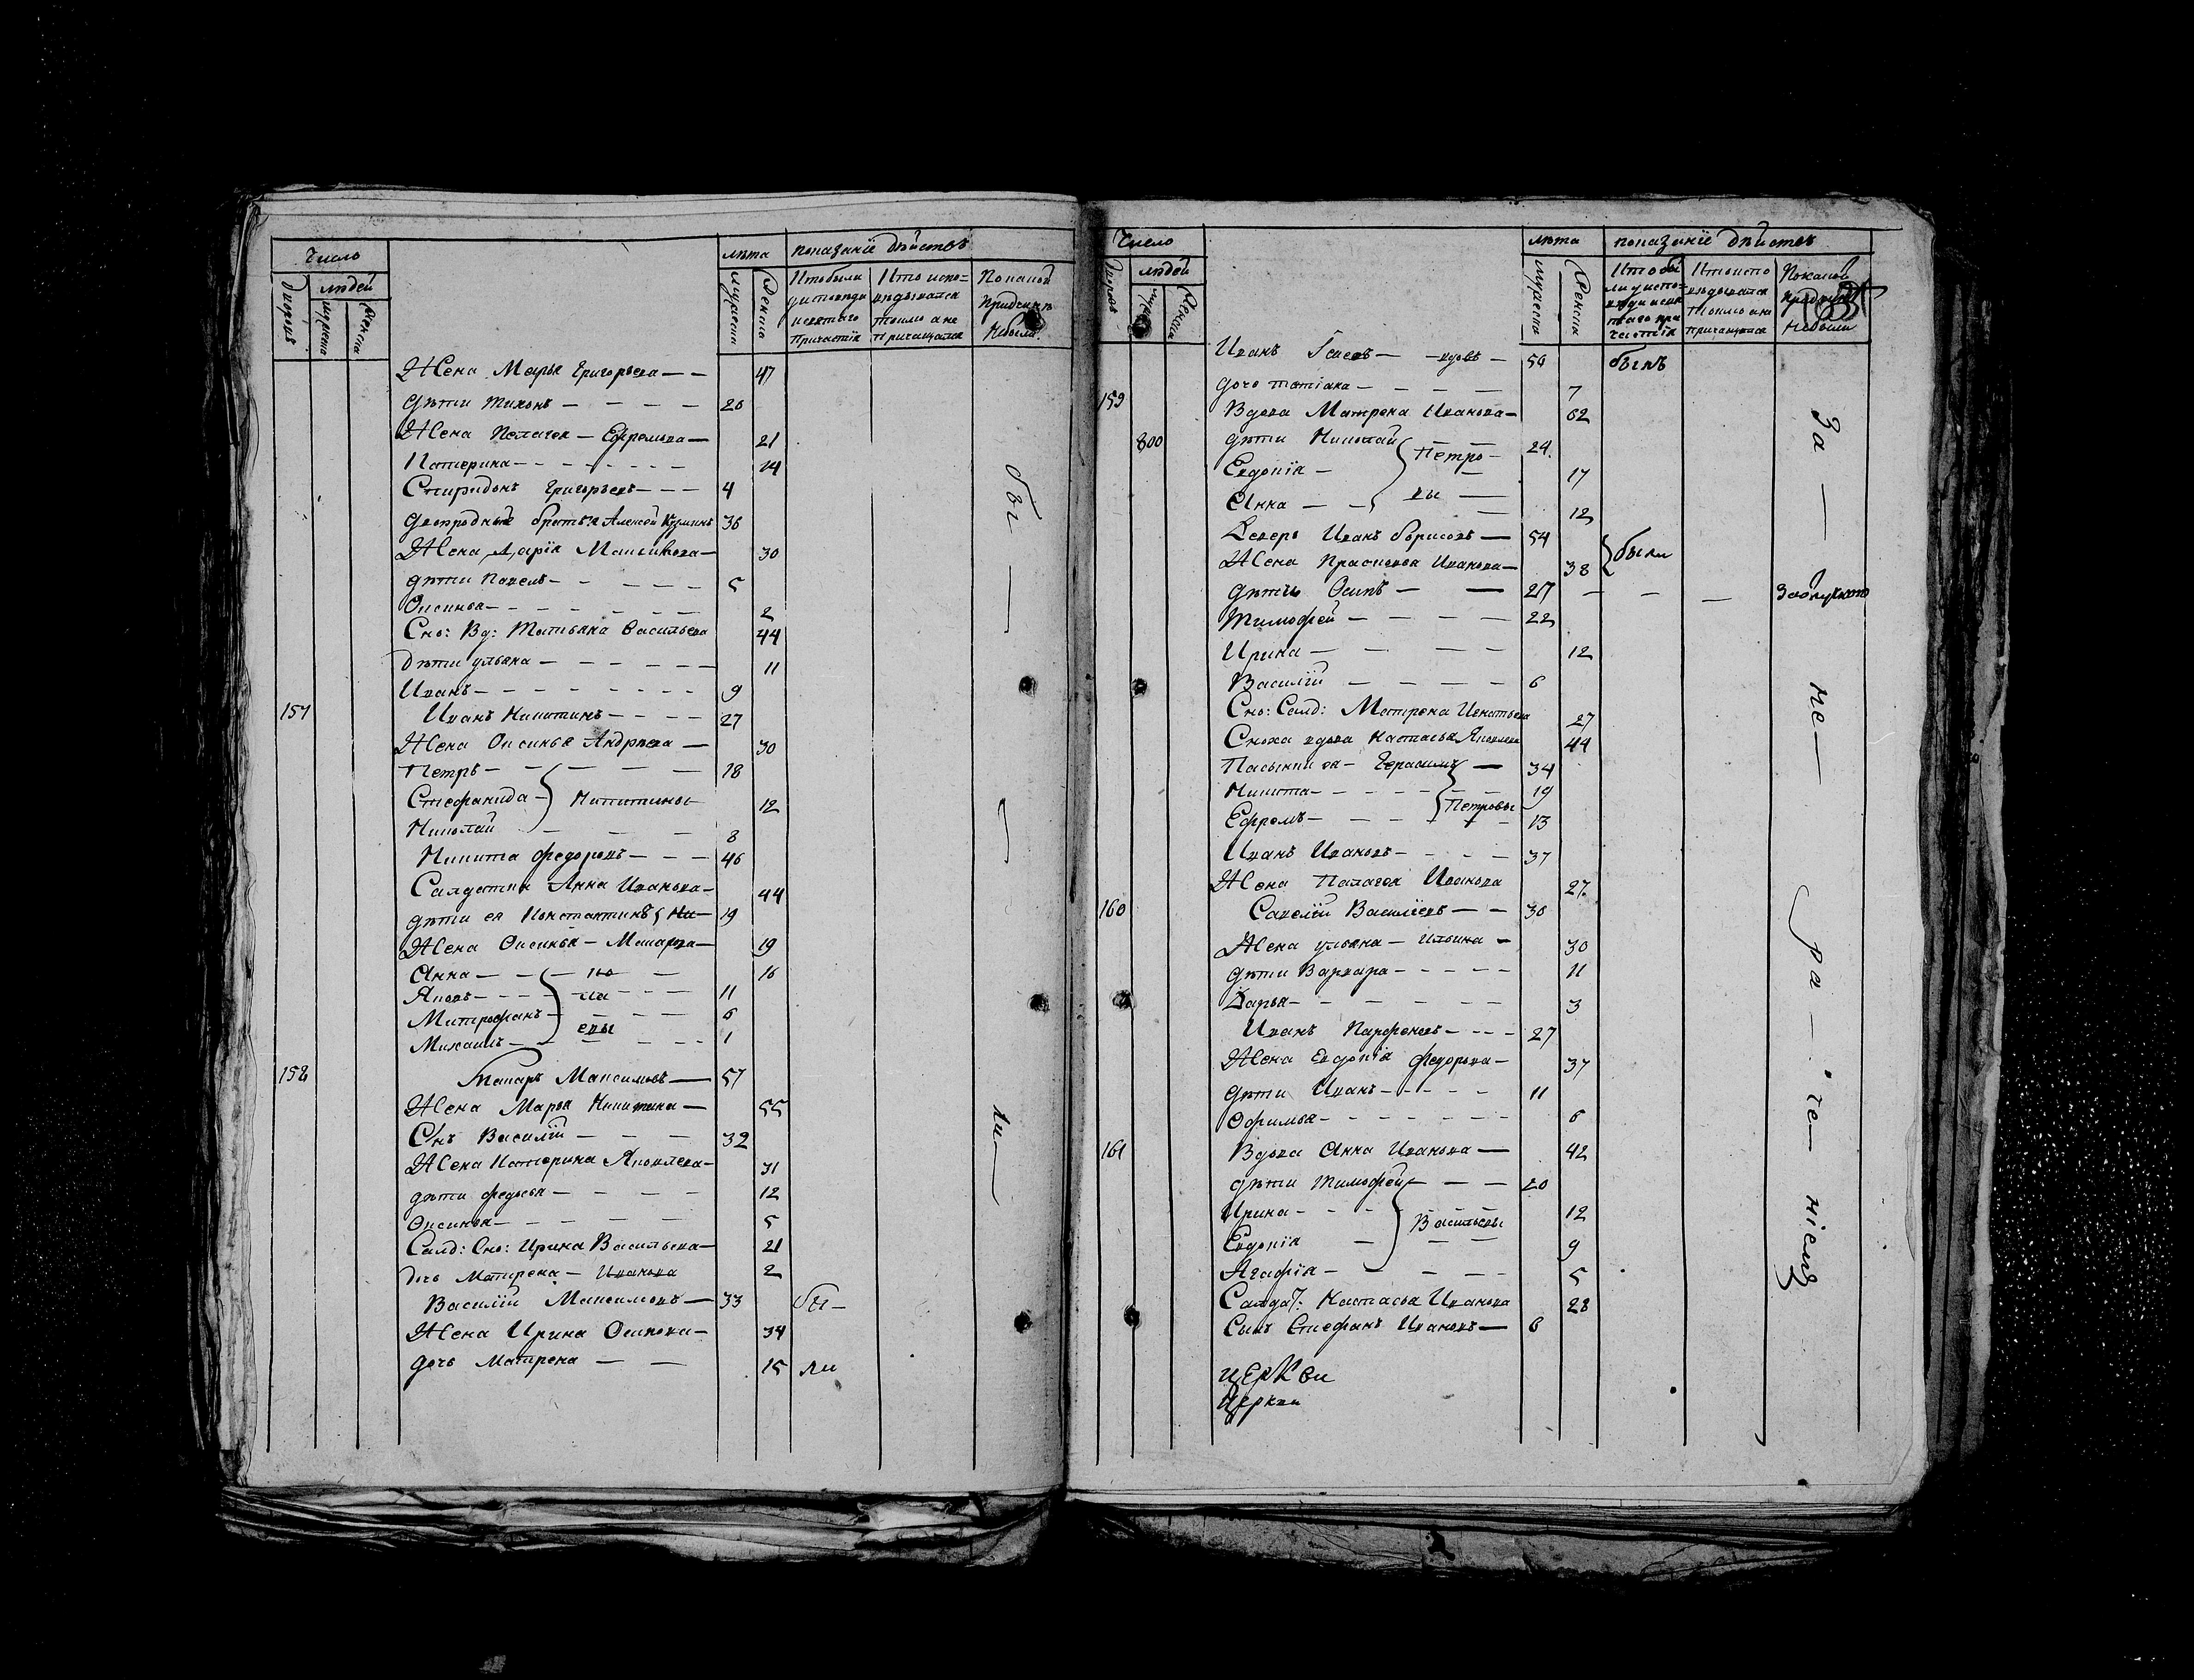 Число
лѣта показанїе дѣйствъ
дворовъ людей мужеска женска
мужеска женска
Кто были у исповѣди и святаго причастїя
Кто испо=вѣдывался токмо а не причащался
По какой причинѣ не были
Жена Марья Григорьева — — 47
дѣти Тихонъ — — — — 20
Жена Пелагея — Ефремова — 21
Катерина — — — — — — 14
Спиридонъ Григорьевъ — — — 4
двоюродные братья Алексѣй Кузминъ 36
Жена Марїя — 30
дѣти Павелъ — — — — — 5
Оксинья — — — — — — — 2
Сно: Вд: Татьяна Васильева 44
дѣти ульяна — — — — — — 11
Иванъ — — — — — — — — 9
157 Иванъ Никитинъ — — — — 27
Жена Оксинья Андрѣева — 30
Петръ — — — — — 18
Стефанида — Никитины 12
Николай — — — 8
Никита Федоровъ — — — 46
Салдатка Анна Иванова — 44
дѣти ея Константинъ Ни — 19
Жена Оксинья — Макарова — 19
Анна — — — ко — 16
Яковъ — — — — ла — — — 11
Митрофанъ — — — — 6
Михаилъ — — евы — — — 1
158 Макаръ Максимовъ — 57
Жена Марья Никитина — 55
Снъ Василїй — — — 32
Жена Катерина Яковлева — 31
дѣти федосья — — — — 12
Оксинья — — — — — 5
Салд: Сно: Ирина Васильева — 21
дочь Матрена — Иванова 2
Василїй Максимовъ — 33 бы —
Жена Ирина Осипова — 34
дочь Матрена — — 15 ли
бы —
—
ли —
Число
лѣта показанїе дѣйствъ
дворовъ людей мужеска женска
мужеска женска
Кто бы ли у испо=вѣди и свя таго при частїя
Кто испо вѣдывался токмо а не причащался
По какой причинѣ не были
Иванъ — вдовъ — 50 былъ
дочь татїана — — — — 7
159 Вдова Матрена Иванова — 62
800 дѣти Николай — — 24
Евдокїя — Петро — 17
Анна — — вы — 12
Деверь Иванъ борисовъ — 54
Жена Прасковья Иванова — 38 были
дѣти Осипъ — — 27 — — —
Тимофей — — — — 22
Ирина — — — — 12
Василїй — — — — 6
Сно: Салд: Матрена Игнатьева 27
Сноха вдова Настасья Яковлева 44
Пасынки ея — Герасимъ — 34
Никита — — — — — — 19
Ефремъ — — — Петровы 13
Иванъ Ивановъ — — — — 37
Жена Палагея Иванова 27
160 Савелїй Василїевъ — — 30
Жена ульяна — Ильина — 30
дѣти Варвара — — — — — 11
Дарья — — — — — — 3
Иванъ Парфеновъ — — — 27
Жена Евдокїя Федорова — 37
дѣти Иванъ — — — — — 11
Офимья — — — — — — — 6
161 Вдова Анна Иванова — 42
дѣти Тимофей — — — 20
Ирина — — — — 12
Евдокїя — Васильевы 9
Агафїя — — — — — 5
Салдат: Настасья Иванова 28
Сынъ Стефанъ Ивановъ — 6
церкви
Церкви
За — не — ра — че — нїемъ